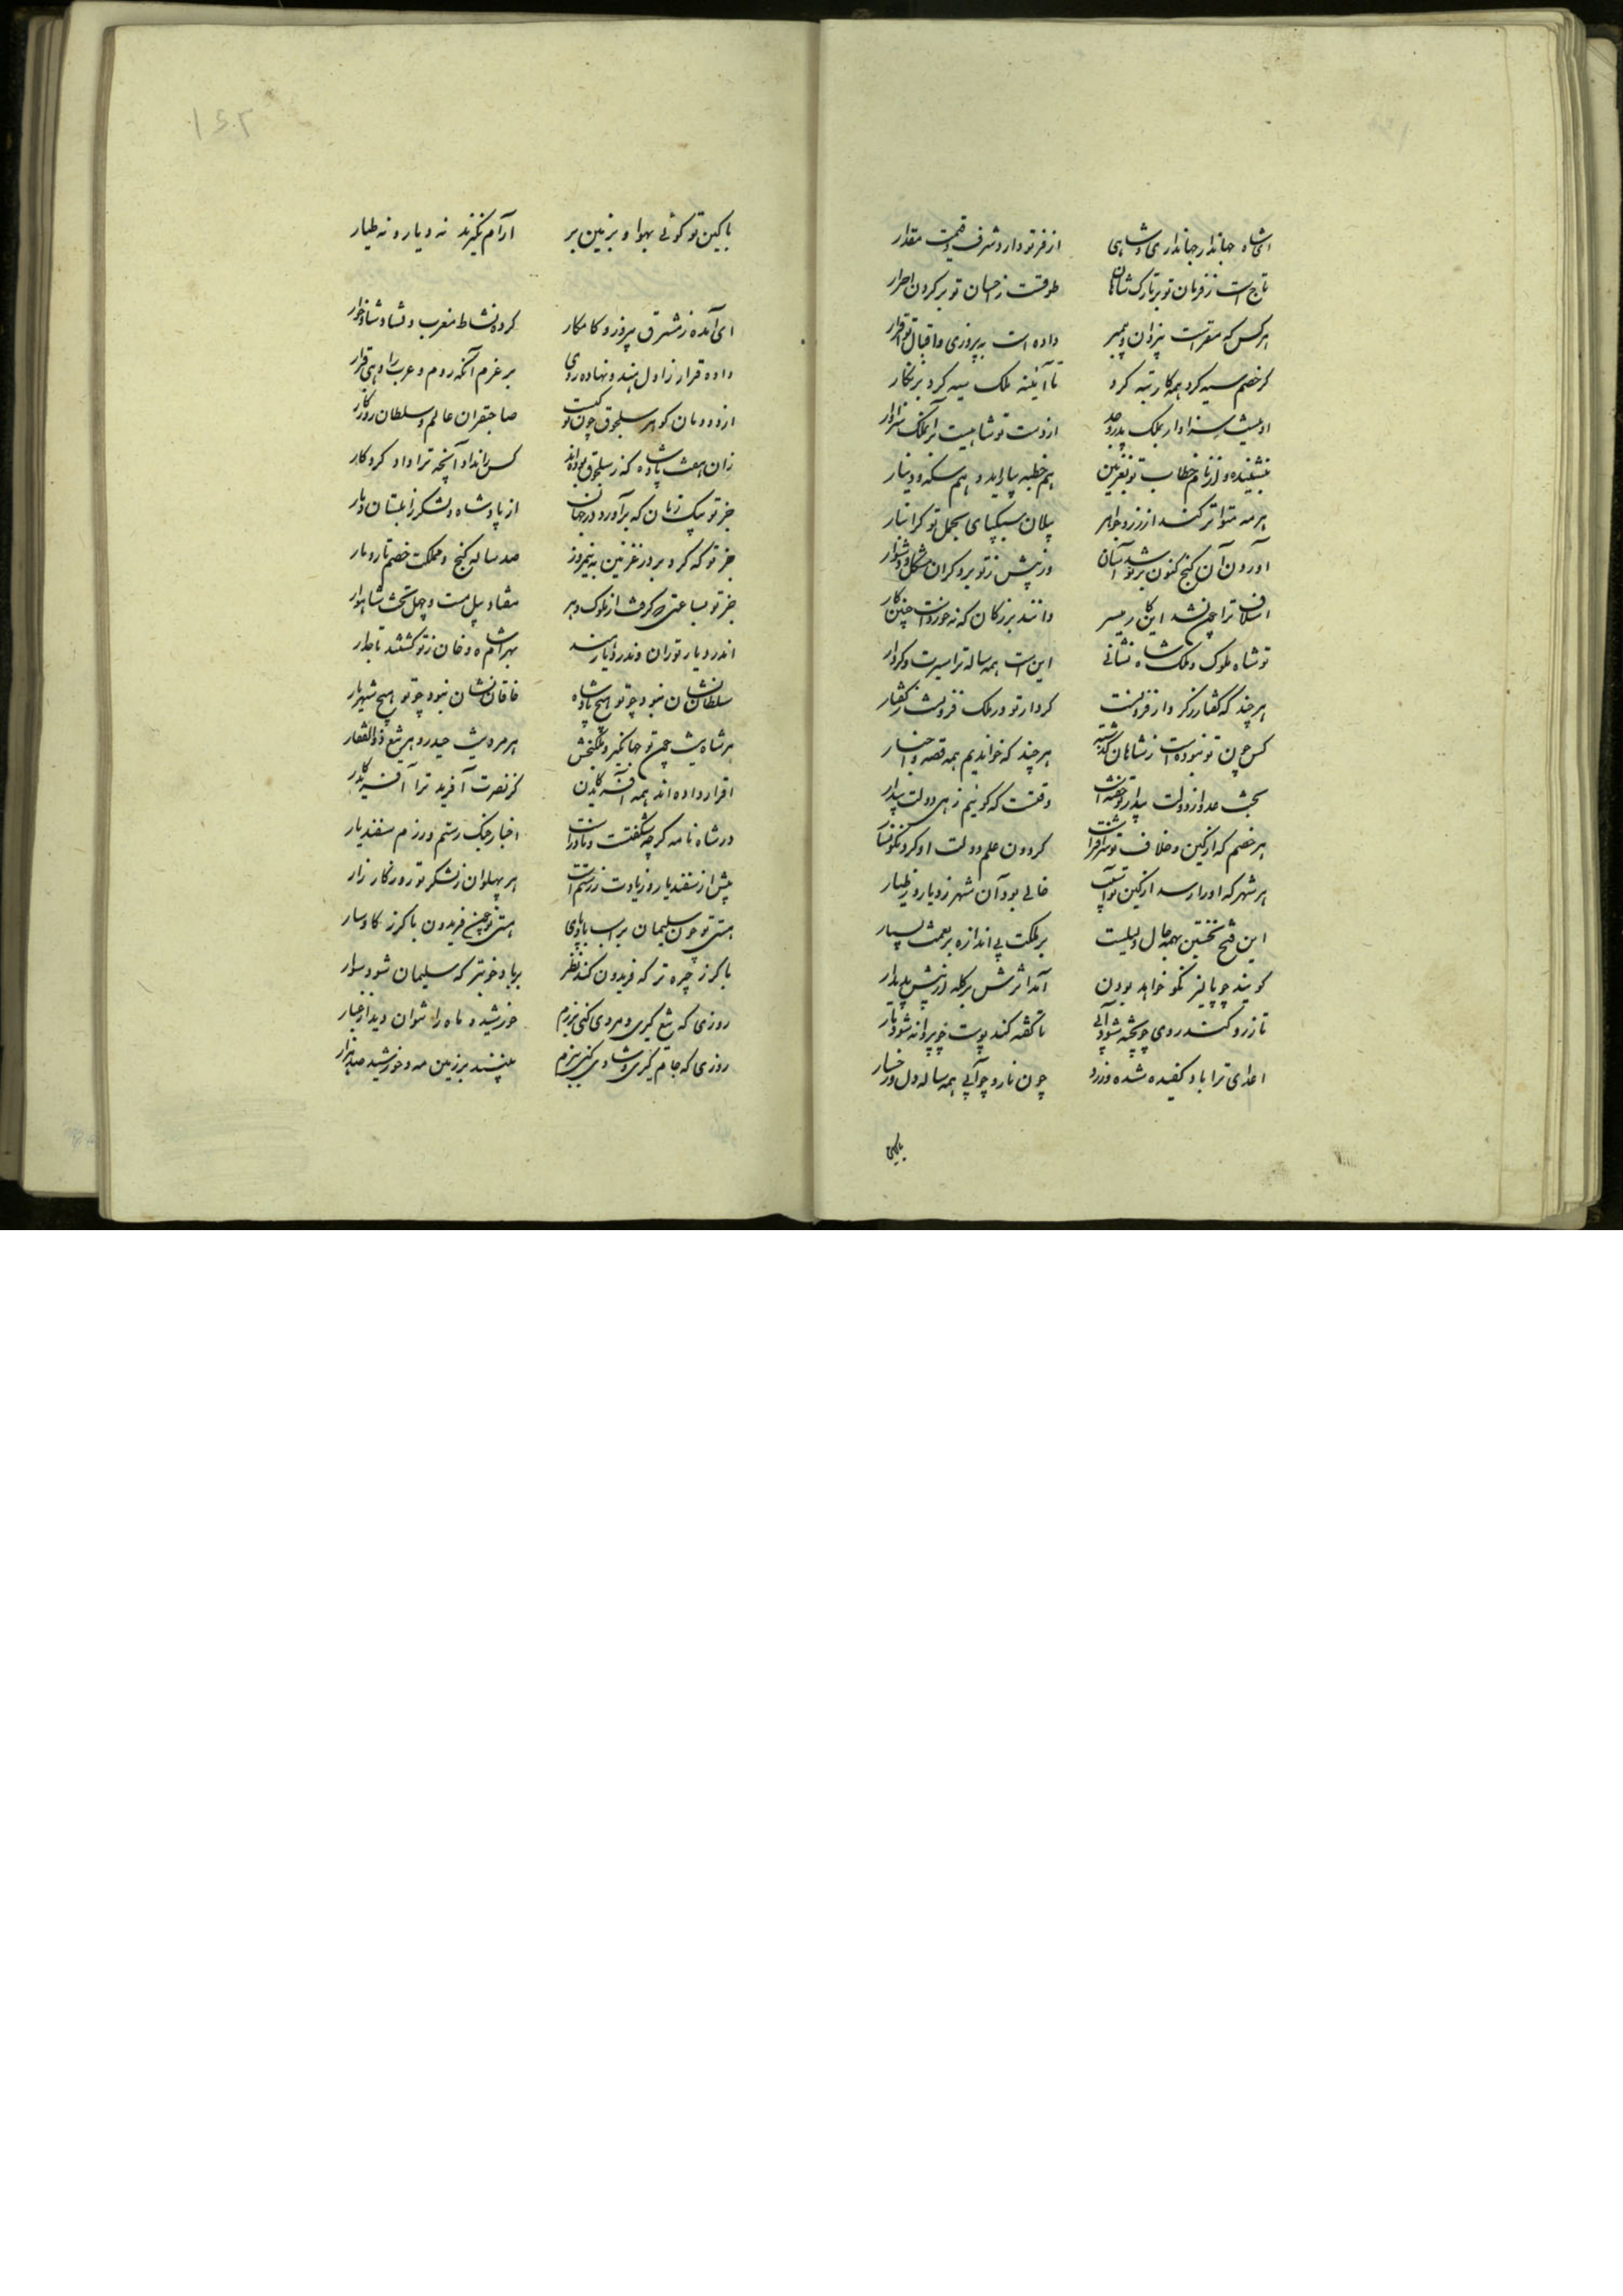 ای شاه جهاندار جهانداری و شاهی از فر تو دارد شرف و قیمت و مقدار
تاج است ز فرمان تو بر تارک شاهان طوقست ز احسان تو بر گردن احرار
هرکس که مقر است بیزدان و پیمبر داده است به پیروزی و اقبال تو اقرار
گر خصم سیه کرد همه کار تبه کرد تا آئینه ملک سیه کرد بزنگار
او نیست سزاوار بملک پدر و جد از دست تو شاهیست بر آن ملک سزاوار
بنشیند و از نام خطاب تو بغزنین هم خطبه بیاراید و هم سکه و دینار
هر مه متواتر کند از زر و جواهر پیلان سبکپای بحمل تو گرانبار
آوردن آن گنج کنون بر تو شد آسان ور پیش ز تو بر دگران مشکل و دشوار
اسلاف ترا چون نشد این کار میسر دانند بزرگان که نه خوردست چنین کار
تو شاه ملوک و ملک شاه نشانی این است همه ساله ترا سیرت و کردار
هرچند که گفتار ز کردار فزونست کردار تو در ملک فزونست ز گفتار
کس چون تو نبوده است ز شاهان گذشته هرچند که خواندیم همه قصه و اخبار
بخت عدو از دولت بیدار تو خفته است وقتست که گوئیم زهی دولت بیدار
هر خصم که از کین و خلاف تو سر افراشت گردون علم دولت او کرد نگونسار
هر شهر که او را رسد از کین تو آسیب خالی بود آن شهر ز دیار و ز طیار
این فتح نخستین بهمه حال دلیلست بر ملکت بی اندازه بر نعمت بسیار
گویند چو پالیز نکو خواهد بودن آمد اثرش بر گله از پیش پدیدار
تا زرد کند روی چو پخته شود آبی تا کفته کند پوست چو پردانه شود نار
اعدای ترا باد کفیده شده و زرد چون نار و چو آبی همه ساله دل و رخسار
باکین
با کین تو گوئی بهوا و بزمین بر آرام نگیرند نه دیار و نه طیار
ای آمده ز مشرق پیروز و کامکار کرده نشاط مغرب و نشاد شادخوار
داده قرار زاول هند و نهاده روی بر عزم آنکه روم و عرب را دهی قرار
از دودمان گوهر سلجوق چون تو کیست صاحبقران عالم و سلطان روزگار
زان هفت پادشاه که ز سلجوق بوده‌اند کس را نداد آنچه ترا داد کردگار
جز تو بیک زمان که برآورد در جهان از پادشاه و لشکر زابلستان دمار
جز تو که کرد بر در غزنین به نیمروز صد ساله گنج و مملکت خصم تار و مار
جز تو بساعتی که گرفت از ملوک دهر هفتاد پیل مست و چهل تخت شاهوار
اندر دیار توران وندر دیار هند بهرامشاه و خان ز تو گشتند تاجدار
سلطان نشان نبود چو تو هیچ پادشاه خاقان نشان نبود چو تو هیچ شهریار
هر شاه نیست چون تو جهانگیر و ملکبخش هر مرد نیست حیدر و هر تیغ ذوالفقار
اقرار داده اند همه آفریدگان کز نصرت آفرید ترا آفریدگار
در شاه نامه گرچه شگفتست و نادر است اخبار جنگ رستم و رزم سفندیار
بیش از سفندیار و زیادت ز رستم است هر پهلوان ز لشکر تو روز کارزار
هستی تو چون سلیمان بر اسب بادپای هستی تو چون فریدون با گرز گاوسار
با گرز چیره تر که فریدون کند نظر بر باد خوبتر که سلیمان شود سوار
روزی که تیغ گیری و مردی کنی برزم خورشید و ماه را نتوان دید از غبار
روزی که جام گیری و شادی کنی ببزم بینند بر زمین مه و خورشید صد هزار